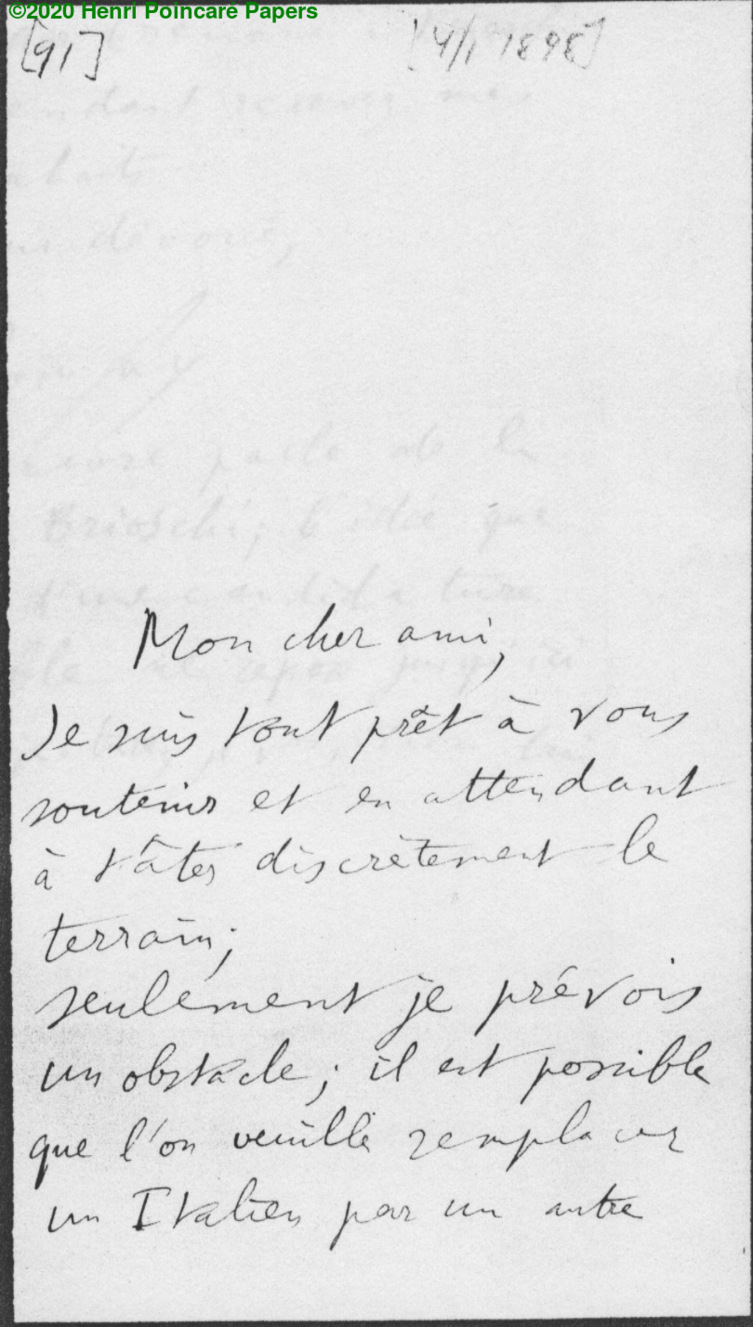 ©2020 Henri Poincaré Papers
[91] [4/1 1898]
Mon cher ami,
Je suis tout prêt à vous
soutenir et en attendant
à tâter discrètement le
terrain;
seulement je prévois
un obstacle; il est possible
que l'on veuille remplacer
un Italien par un autre